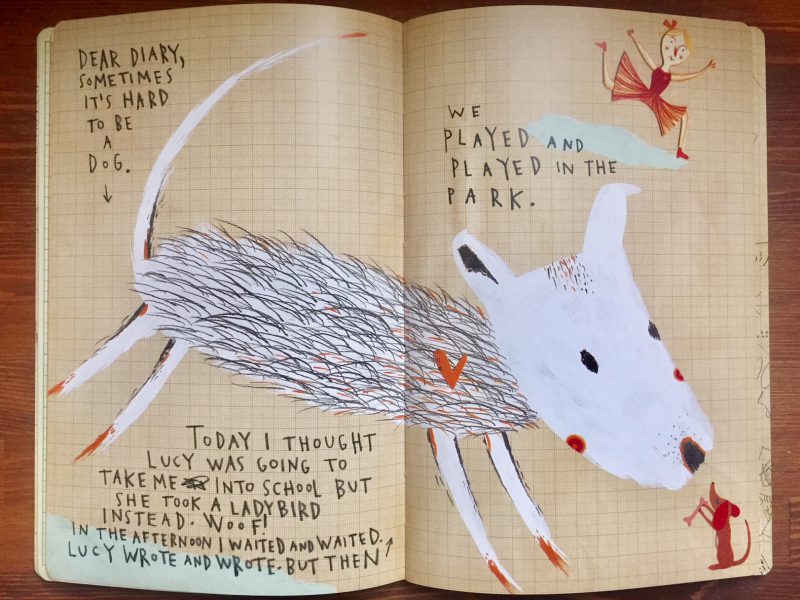 DEAR DIARY,
SOMETIMES
IT'S HARD
TO BE
A
DOG.
TODAY I THOUGHT
LUCY WAS GOING TO
TAKE ME INTO SCHOOL BUT
SHE TOOK A LADYBIRD
INSTEAD. WOOF!
IN THE AFTERNOON I WAITED AND WAITED.
LUCY WROTE AND WROTE. BUT THEN
WE
PLAYED AND
PLAYED IN THE
PARK.